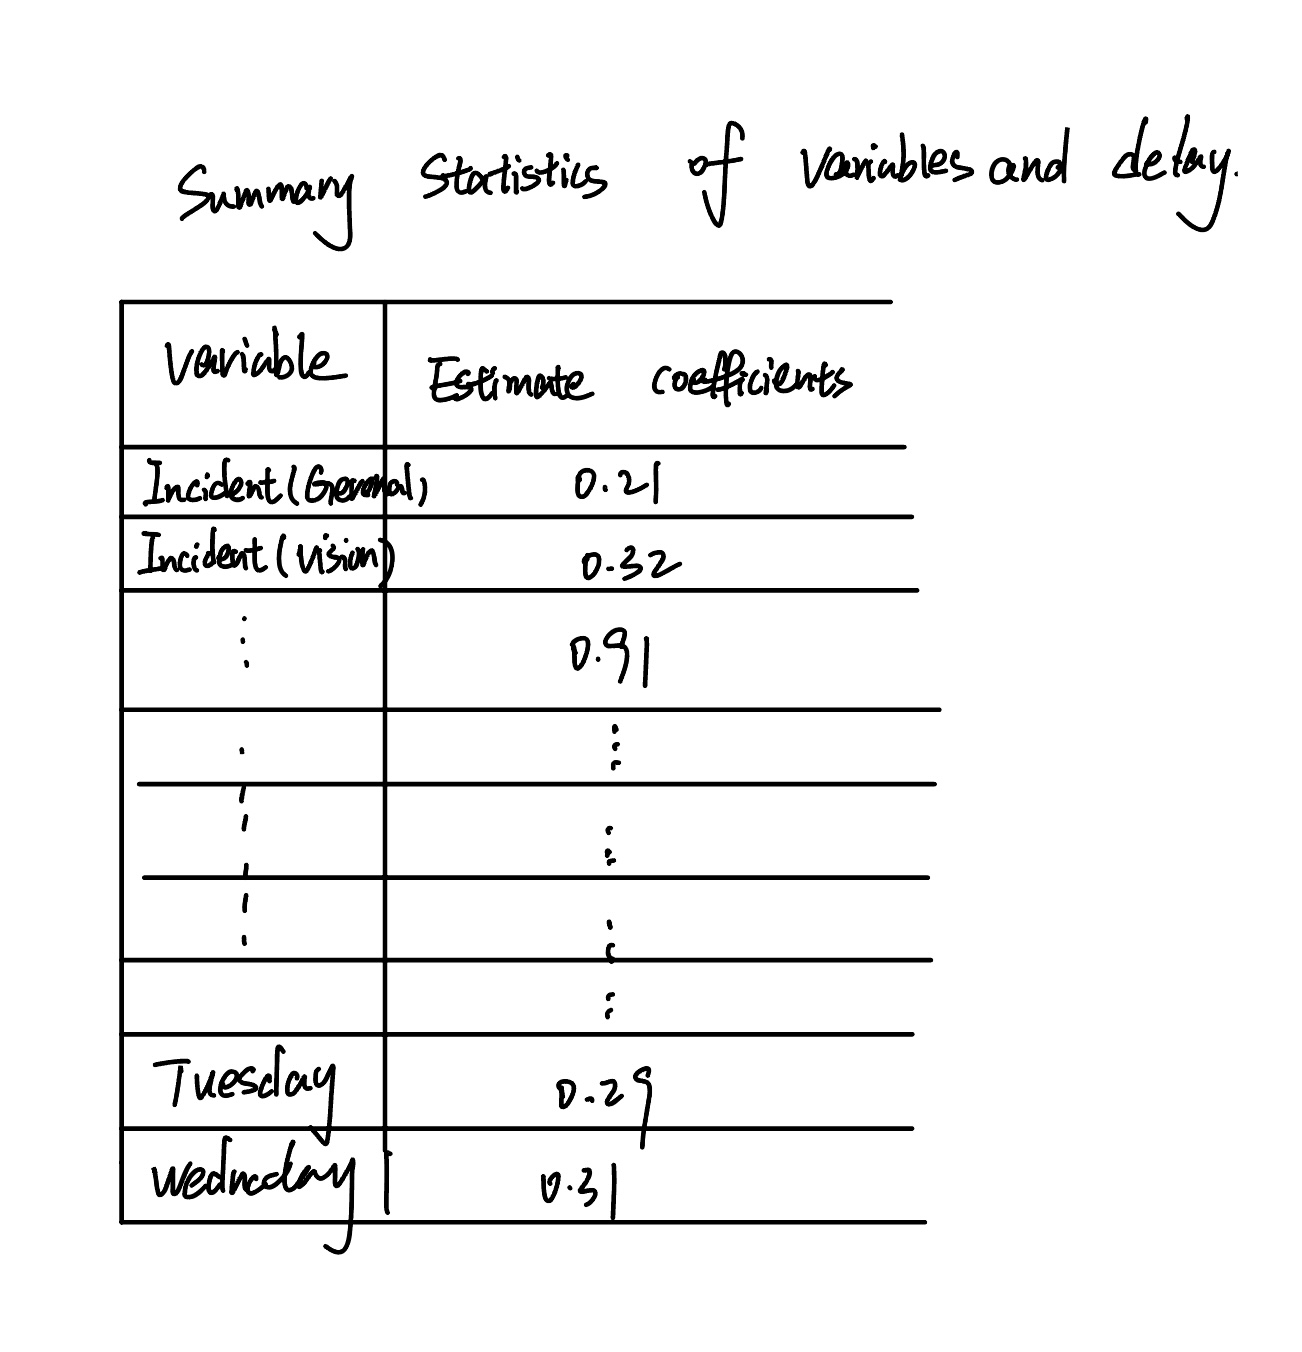 Summary Statistics of variables and delay.
Variable Estimate coefficients
Incident (General) 0.21
Incident (Vision) 0.32
0.91
Tuesday 0.29
Wednesday 0.31